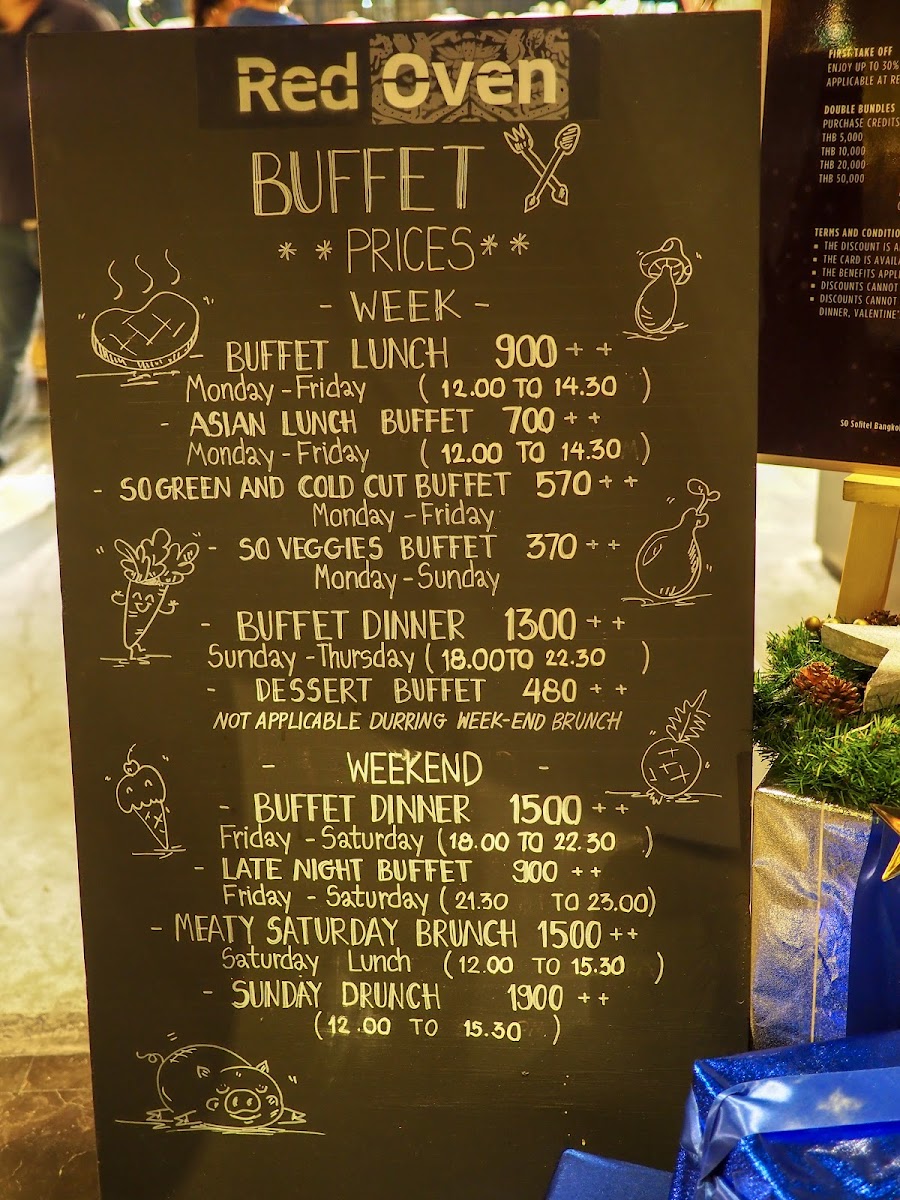 Red Oven
BUFFET
* * PRICES * *
- WEEK -
- BUFFET LUNCH 900++
Monday - Friday (12.00 TO 14.30)
- ASIAN LUNCH BUFFET 700++
Monday - Friday (12.00 TO 14.30)
- SO GREEN AND COLD CUT BUFFET 570++
Monday - Friday
- SO VEGGIES BUFFET 370++
Monday - Sunday
- BUFFET DINNER 1300++
Sunday - Thursday (18.00 TO 22.30)
- DESSERT BUFFET 480++
NOT APPLICABLE DURRING WEEK-END BRUNCH
- WEEKEND -
- BUFFET DINNER 1500++
Friday - Saturday (18.00 TO 22.30)
- LATE NIGHT BUFFET 900++
Friday - Saturday (21.30 TO 23.00)
- MEATY SATURDAY BRUNCH 1500++
Saturday Lunch (12.00 TO 15.30)
- SUNDAY DRUNCH 1900++
(12.00 TO 15.30)
FIRST TAKE OFF
ENJOY UP TO 30%
APPLICABLE AT RE
DOUBLE BUNDLES
PURCHASE CREDITS
THB 5,000
THB 10,000
THB 20,000
THB 50,000
TERMS AND CONDITIO
▪ THE DISCOUNT IS A
▪ THE CARD IS AVAILA
▪ THE BENEFITS APPL
▪ DISCOUNTS CANNOT
▪ DISCOUNTS CANNOT
DINNER, VALENTINE'
SO Sofitel Bangko